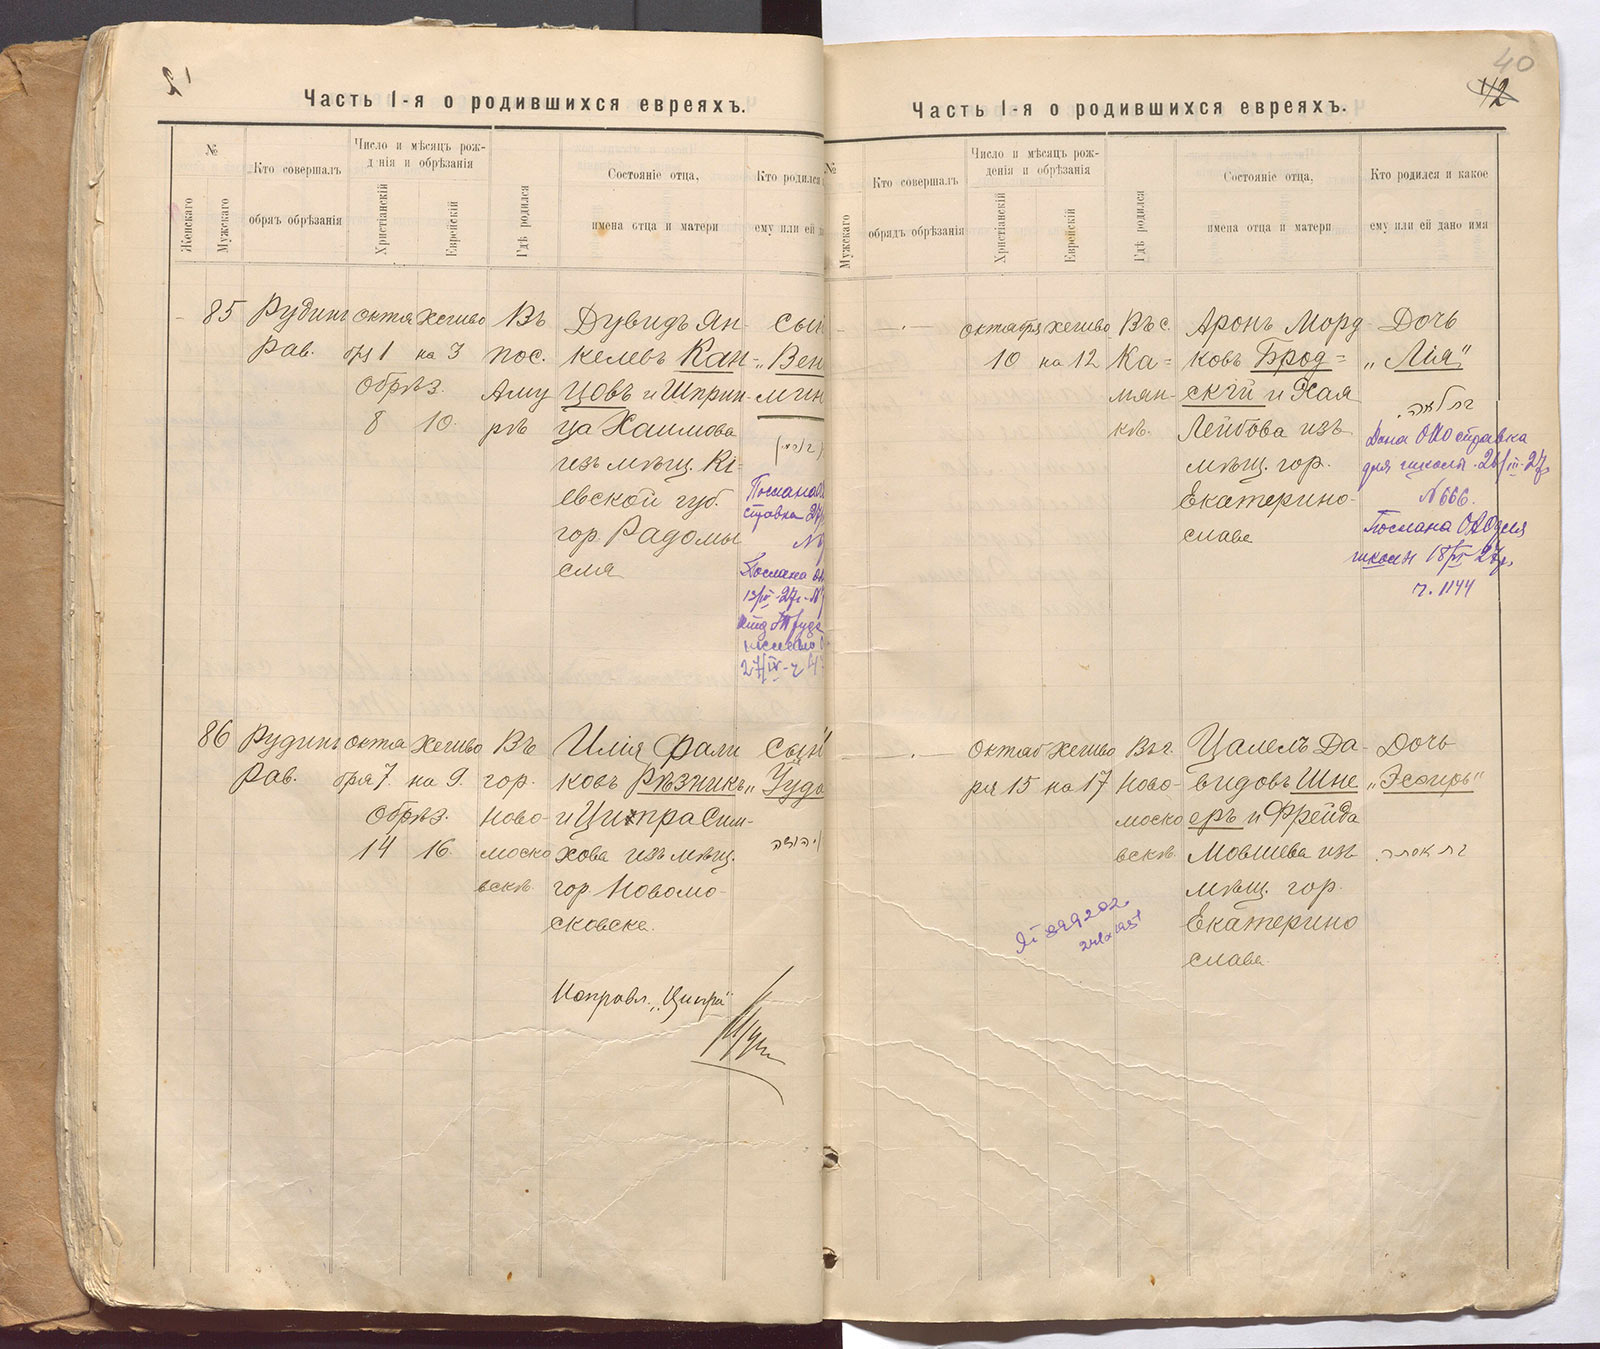 Часть I-я о родившихся евреяхъ.
№
Женскаго
Мужскаго
Кто совершалъ
обрядъ обрѣзанія
Число и мѣсяцъ рож-
д нія и обрѣзанія
Христіанскій
Еврейскій
Гдѣ родился
Состояніе отца,
имена отца и матери
Кто родился
ему или ей
85
Рудинъ
Рав.
октя
бря 1
Обрѣз.
8
Хешво
на 3
10.
Въ
пос.
Аму
рѣ
Дувидъ Ян-
келевъ Кан=
цовъ и Шприн-
ца Хаимова
изъ мѣщ. Кі=
евской губ.
гор. Радомы
сля
сын
„Вен
мин
Послана
справка 27
№
Послана
13/IV-27г.-№
27/IV-
86
Рудинъ
Рав.
октя
бря 7.
Обрѣз.
14
Хешво
на 9.
16.
Въ
гор.
Ново-
моско
вскѣ.
Илія Фали
ковъ Рѣзникъ
и Ципра Сим-
хова изъ мѣщ.
гор. Новомо-
сковска.
Сынъ
„Іуда
יהודה
Исправл. „Ципра"
Часть I-я о родившихся евреяхъ.
40
42
№
Мужскаго
Кто совершалъ
обрядъ обрѣзанія
Число и мѣсяцъ рож-
денія и обрѣзанія
Христіанскій
Еврейскій
Гдѣ родился
Состояніе отца,
имена отца и матери
Кто родился и какое
ему или ей дано имя
октября
10
хешво
на 12
Въ с.
Ка=
мян-
кѣ.
Аронъ Морд
ковъ Брод=
скій и Хая
Лейбова изъ
мѣщ. гор.
Екатерино-
слава
Дочь
„Лія"
Дана справка
для школы 26/III-27г.
№ 666.
Послана для
школи 18/IV 27р.
ч. 1144
Октяб
ря 15
Хешво
на 17
Въ г.
Ново-
моско
вскѣ.
Цалелъ Да-
видовъ Шне
еръ и Фрейда
Мовшева изъ
мѣщ. гор.
Екатерино
слава
Дочь
„Эсѳирь"